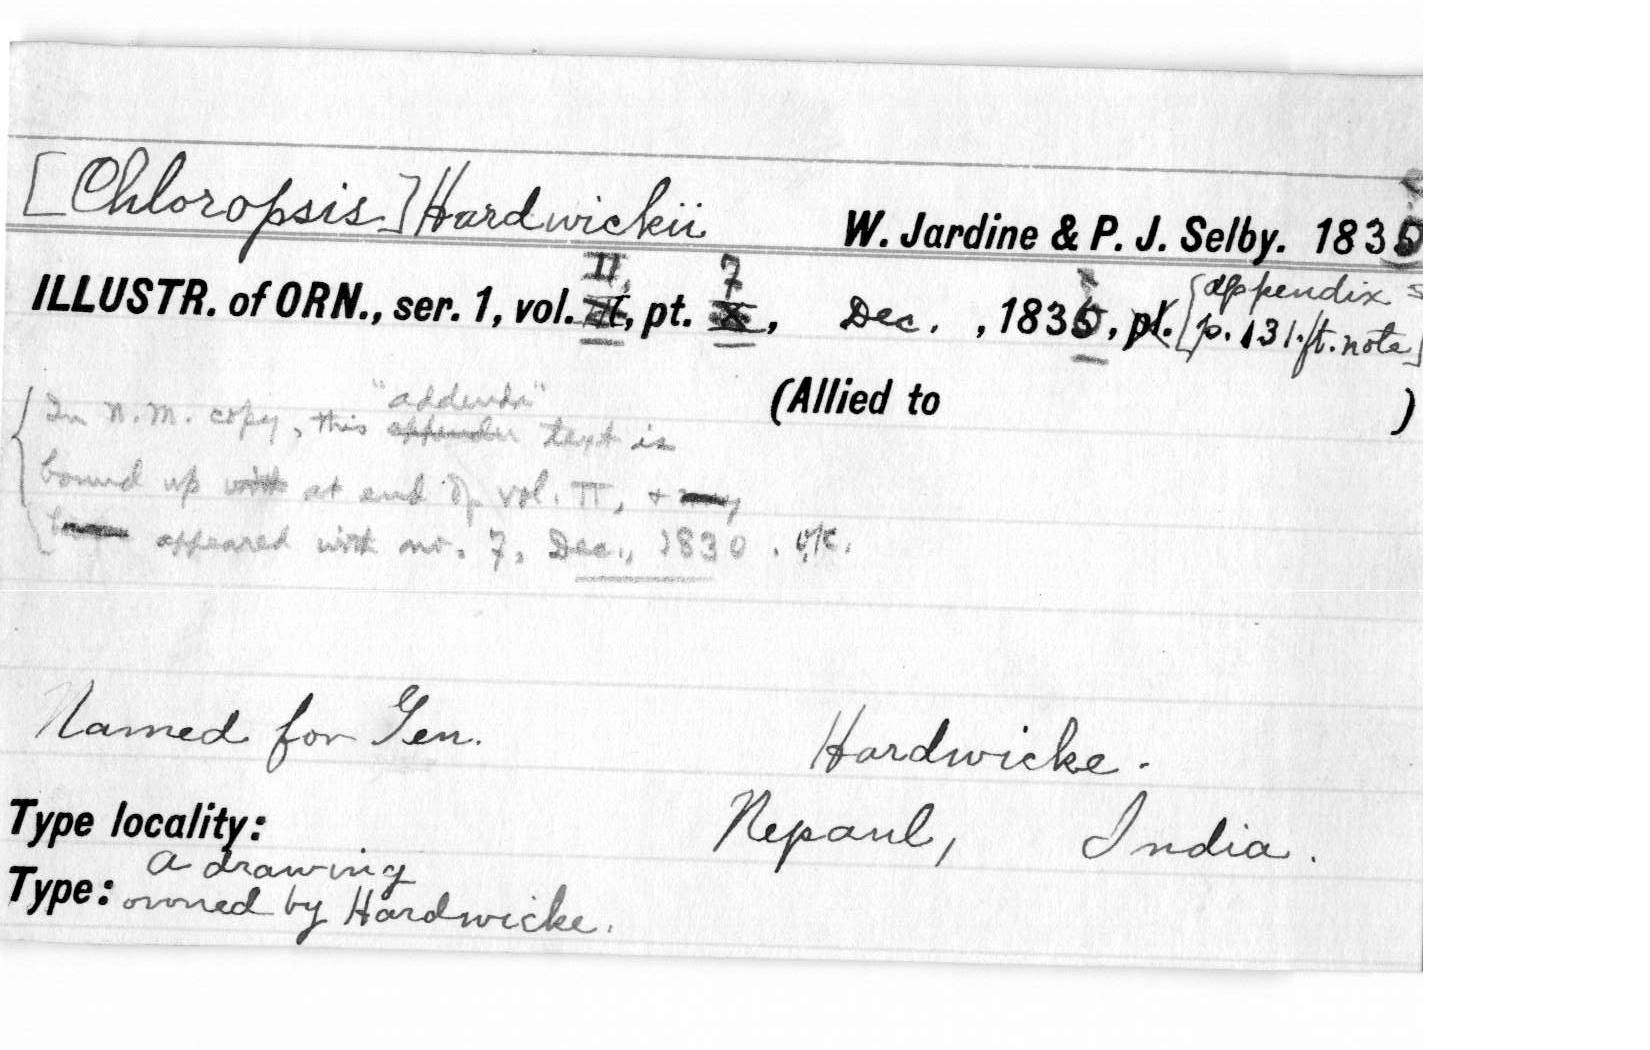 [Chloropsis] Hardwickii
W. Jardine & P. J. Selby. 183
ILLUSTR. of ORN., ser. 1, vol. II, pt. 7, Dec., 183, pl. [appendix =
p. 131. ft. note]
(Allied to )
In N.M. copy, this "addenda" text is
bound up at end of vol. II, +
appeared with no. 7, Dec., 1830. OK.
Named for Gen. Hardwicke.
Type locality: Nepaul, India.
Type: a drawing
owned by Hardwicke.